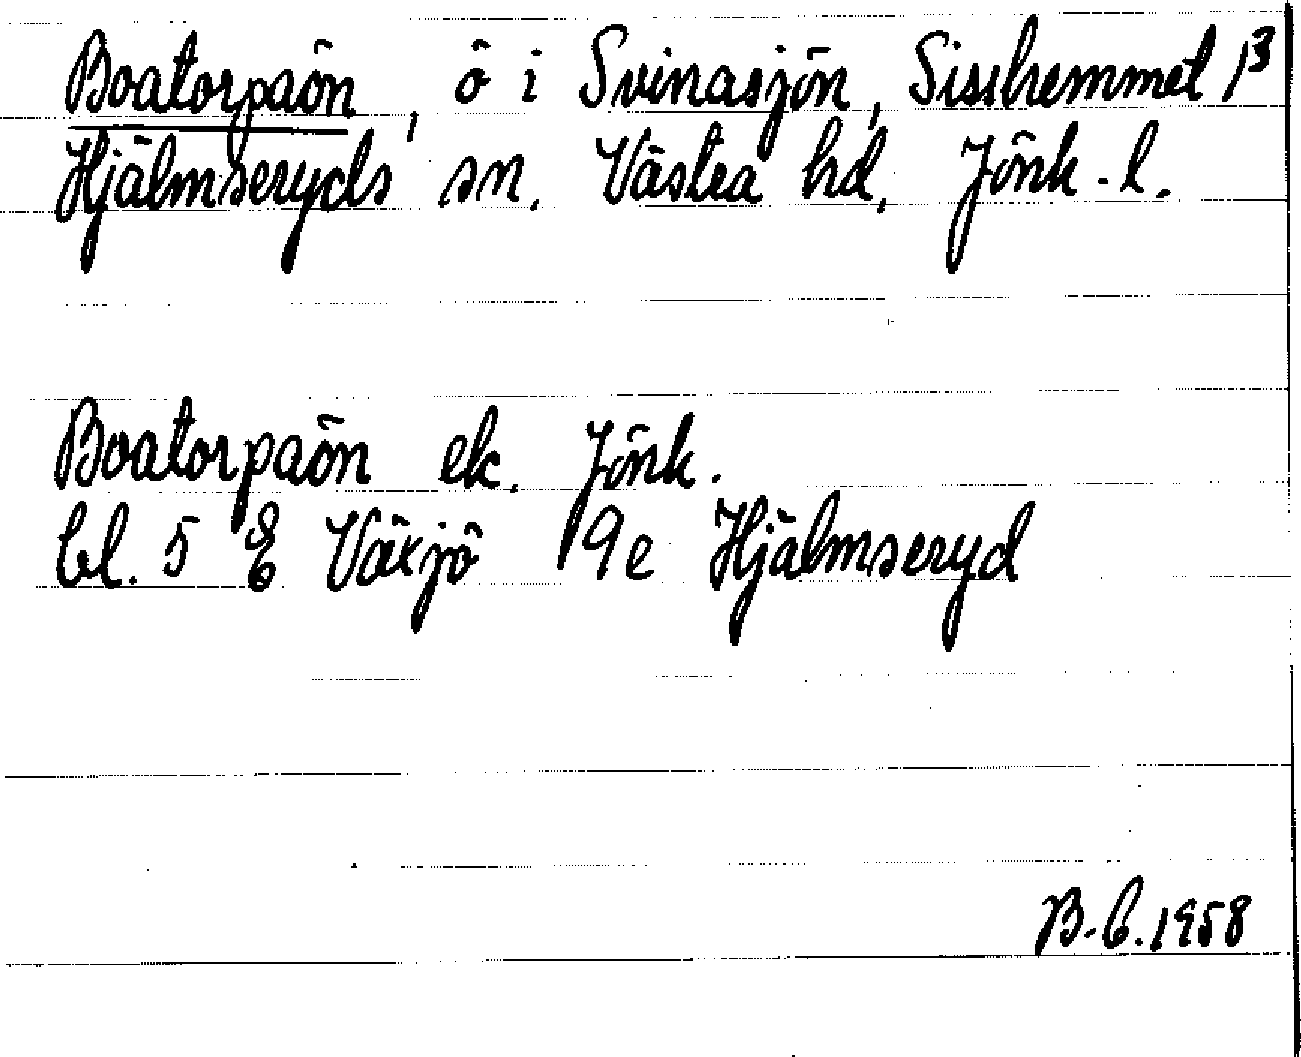 Boatorpaön, ö i Svinasjön, Sisshemmet 1³
Hjälmseryds sn. Västra hd, Jönk. l.
Boatorpaön ek. Jönk.
bl. 5 E Växjö 19e Hjälmseryd
B-b. 1958